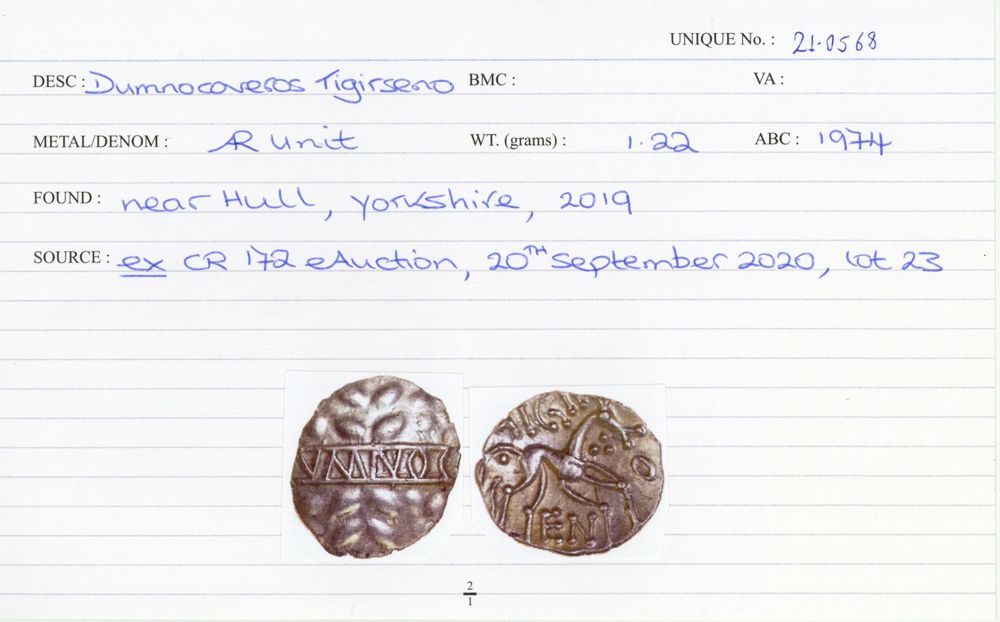 UNIQUE No. : 21·0568
DESC : Dumnocoveros Tigirseno BMC : VA :
METAL/DENOM : AR unit WT. (grams) : 1.22 ABC : 1974
FOUND : near Hull, Yorkshire, 2019
SOURCE : ex CR 172 eAuction, 20TH September 2020, lot 23
VMNOC
TIGI
SENI
2
1